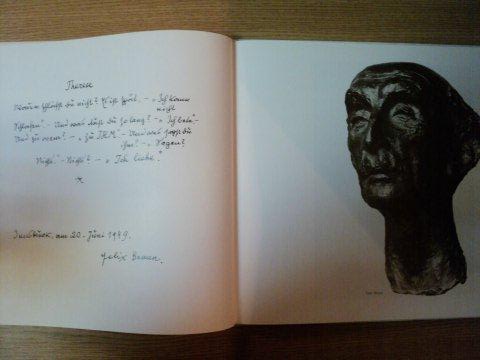 Therese
Warum schläfst du nicht? Es ist spät. – „Ich kann
nicht
schlafen". – Und was tust du so lang? – „Ich bete" –
Und zu wem? – „Zu IHM" – Und was sagst du
ihm? – „Sagen?
Nichts." – Nichts? – „Ich liebe."
Innsbruck, am 20. Juni 1949.
Felix Braun.